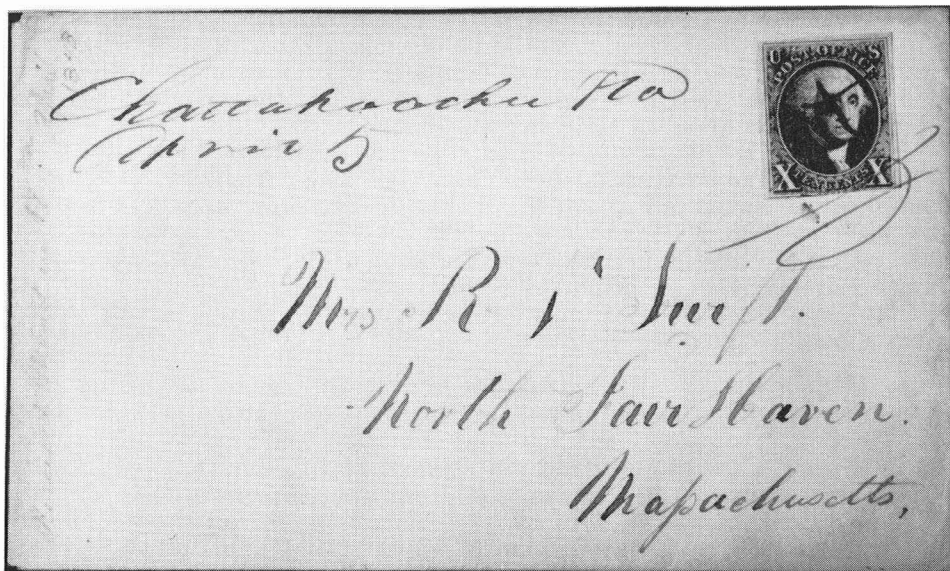 Chattahoochee Fla
April 5
U S
POST OFFICE
X TEN CENTS X
Mrs R Swift.
North Fair Haven.
Massachusetts,